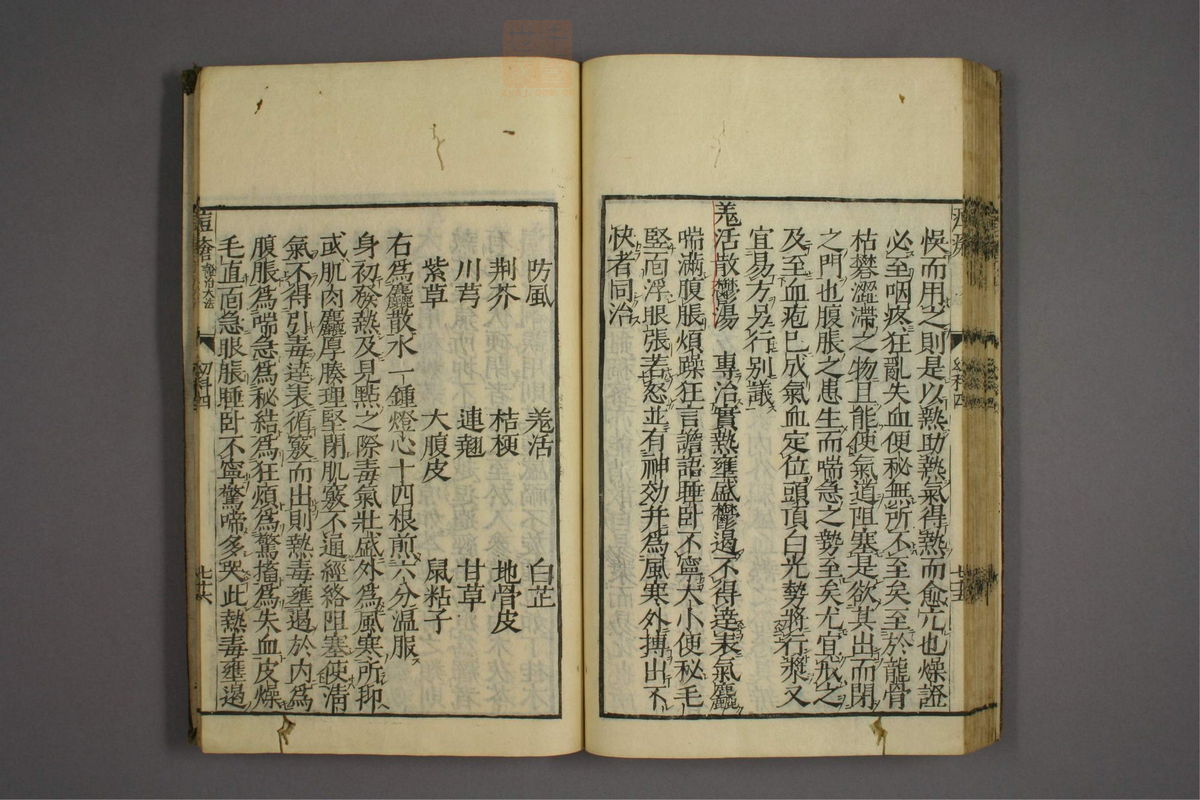 悞而用之則是以熱助熱氣得熱而愈亢也燥證
必至咽疼狂亂失血便秘無所不至矣至於龍骨
枯礬澀滯之物且能使氣道阻塞是欲其出而閉
之門也腹脹之患生而喘急之勢至矣尤宜戒之
及至血疱已成氣血定位頭頂白光勢將行漿又
宜易方另行別議
羗活散鬱湯 專治實熱壅盛鬱遏不得達表氣麤
喘滿腹脹煩躁狂言譫語睡卧不寧大小便秘毛
竪面浮眼張若怒並有神効并為風寒外搏出不
快者同治
幼科四
七十五
防風 羗活 白芷
荆芥 桔梗 地骨皮
川芎 連翹 甘草
紫草 大腹皮 鼠粘子
右為麤散水一鍾燈心十四根煎六分温服
身初發熱及見點之際毒氣壯盛外為風寒所抑
或肌肉麤厚腠理堅閉肌竅不通經絡阻塞使清
氣不得引毒達表循竅而出則熱毒壅遏於内為
腹脹為喘急為秘結為狂煩為驚搐為失血皮燥
毛直面急眼脹睡卧不寧驚啼多哭此熱毒壅遏
痘瘡
幼科四
七十六